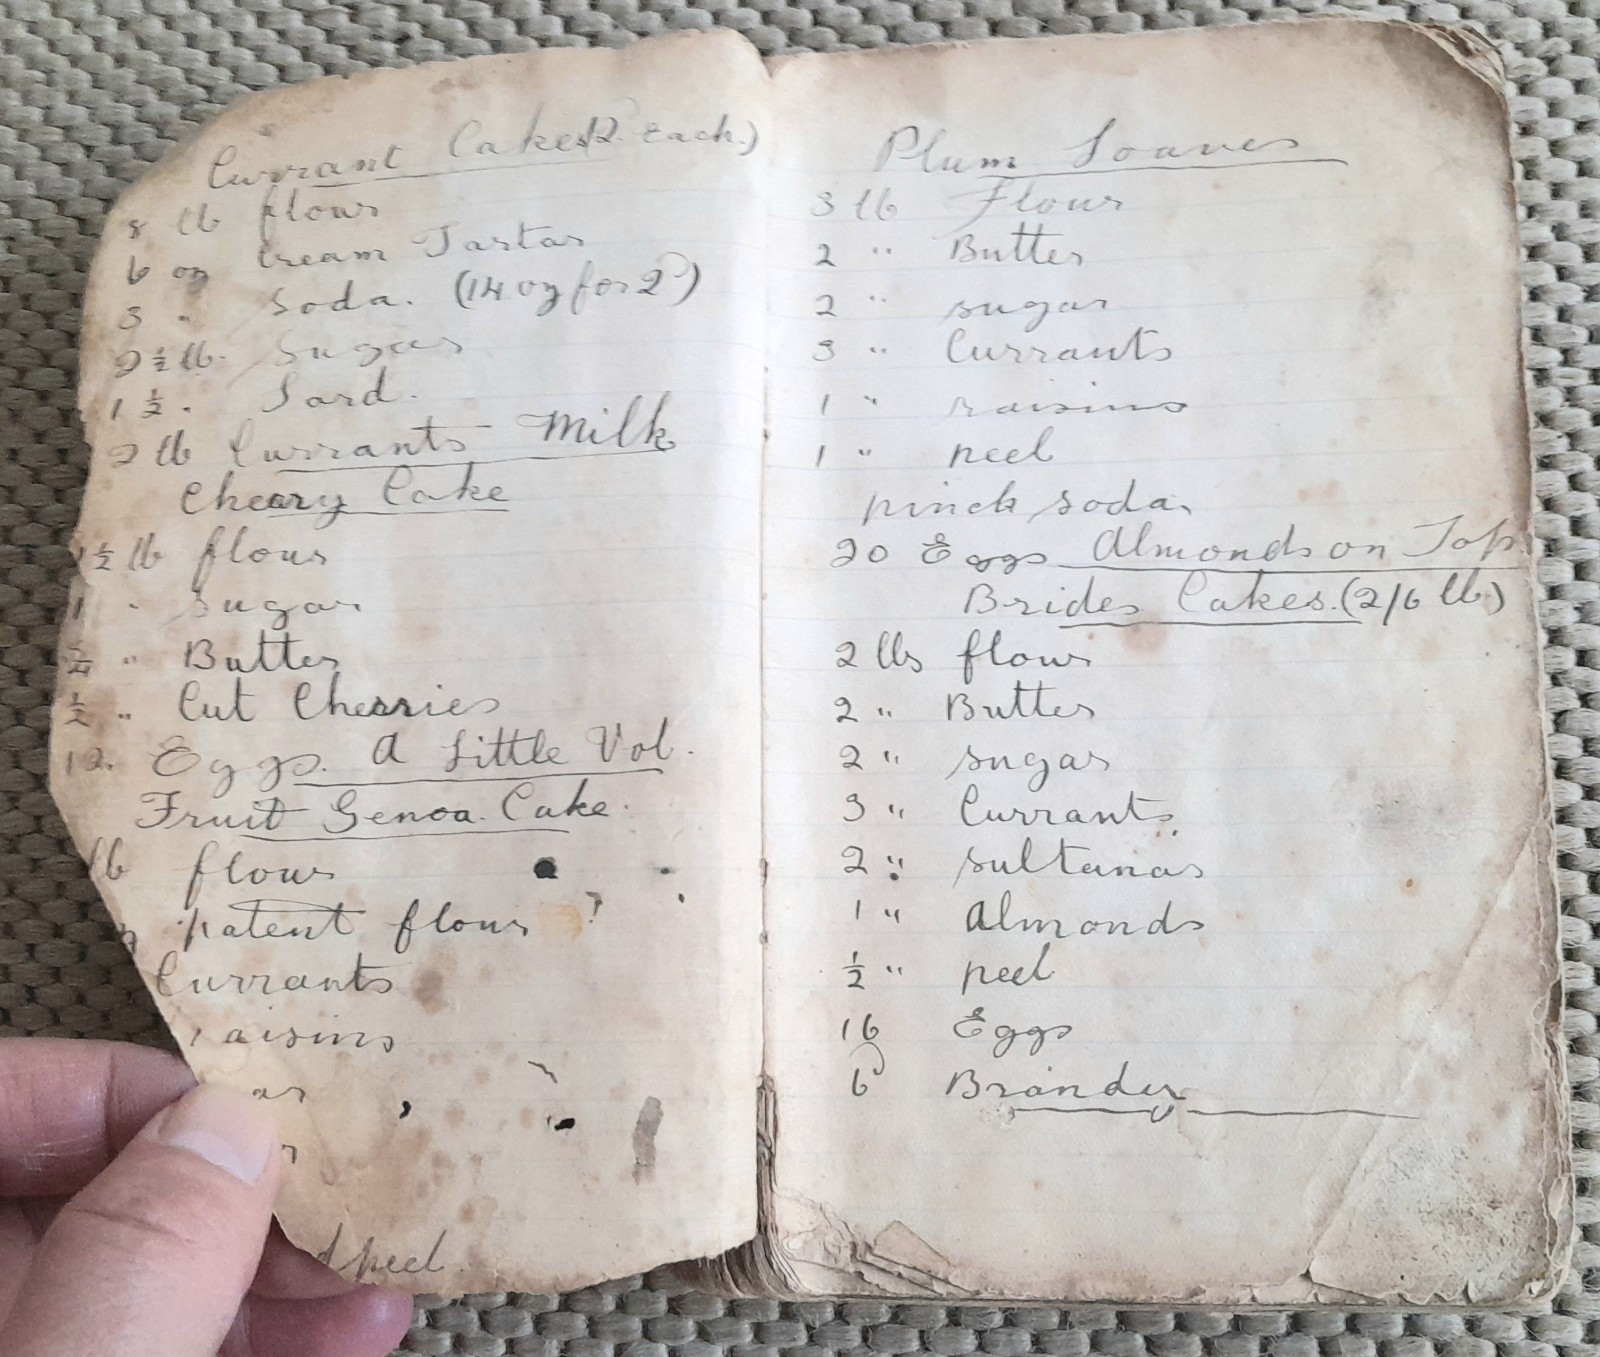 Currant Cakes (2. Each.)
8 lb flour
6 oz Cream Tartar
3 " Soda. (14 oz for 2)
2 ½ lb. Sugar
1 ½ " Lard.
2 lb Currants Milk
Cherry Cake
1½ lb flour
1 " sugar
" Butter
½ " Cut Cherries
12. Eggs. A Little Vol.
Fruit Genoa Cake.
lb flour
patent flour
Currants
raisins
ar
r
d peel.
Plum Loaves
3 lb Flour
2 " Butter
2 " sugar
3 " Currants
1 " raisins
1 " peel
pinch soda
20 Eggs Almonds on Top
Brides Cakes. (2/6 lb)
2 lbs flour
2 " Butter
2 " sugar
3 " Currants
2 " sultanas
1 " Almonds
½ " peel
16 Eggs
6 Brandy